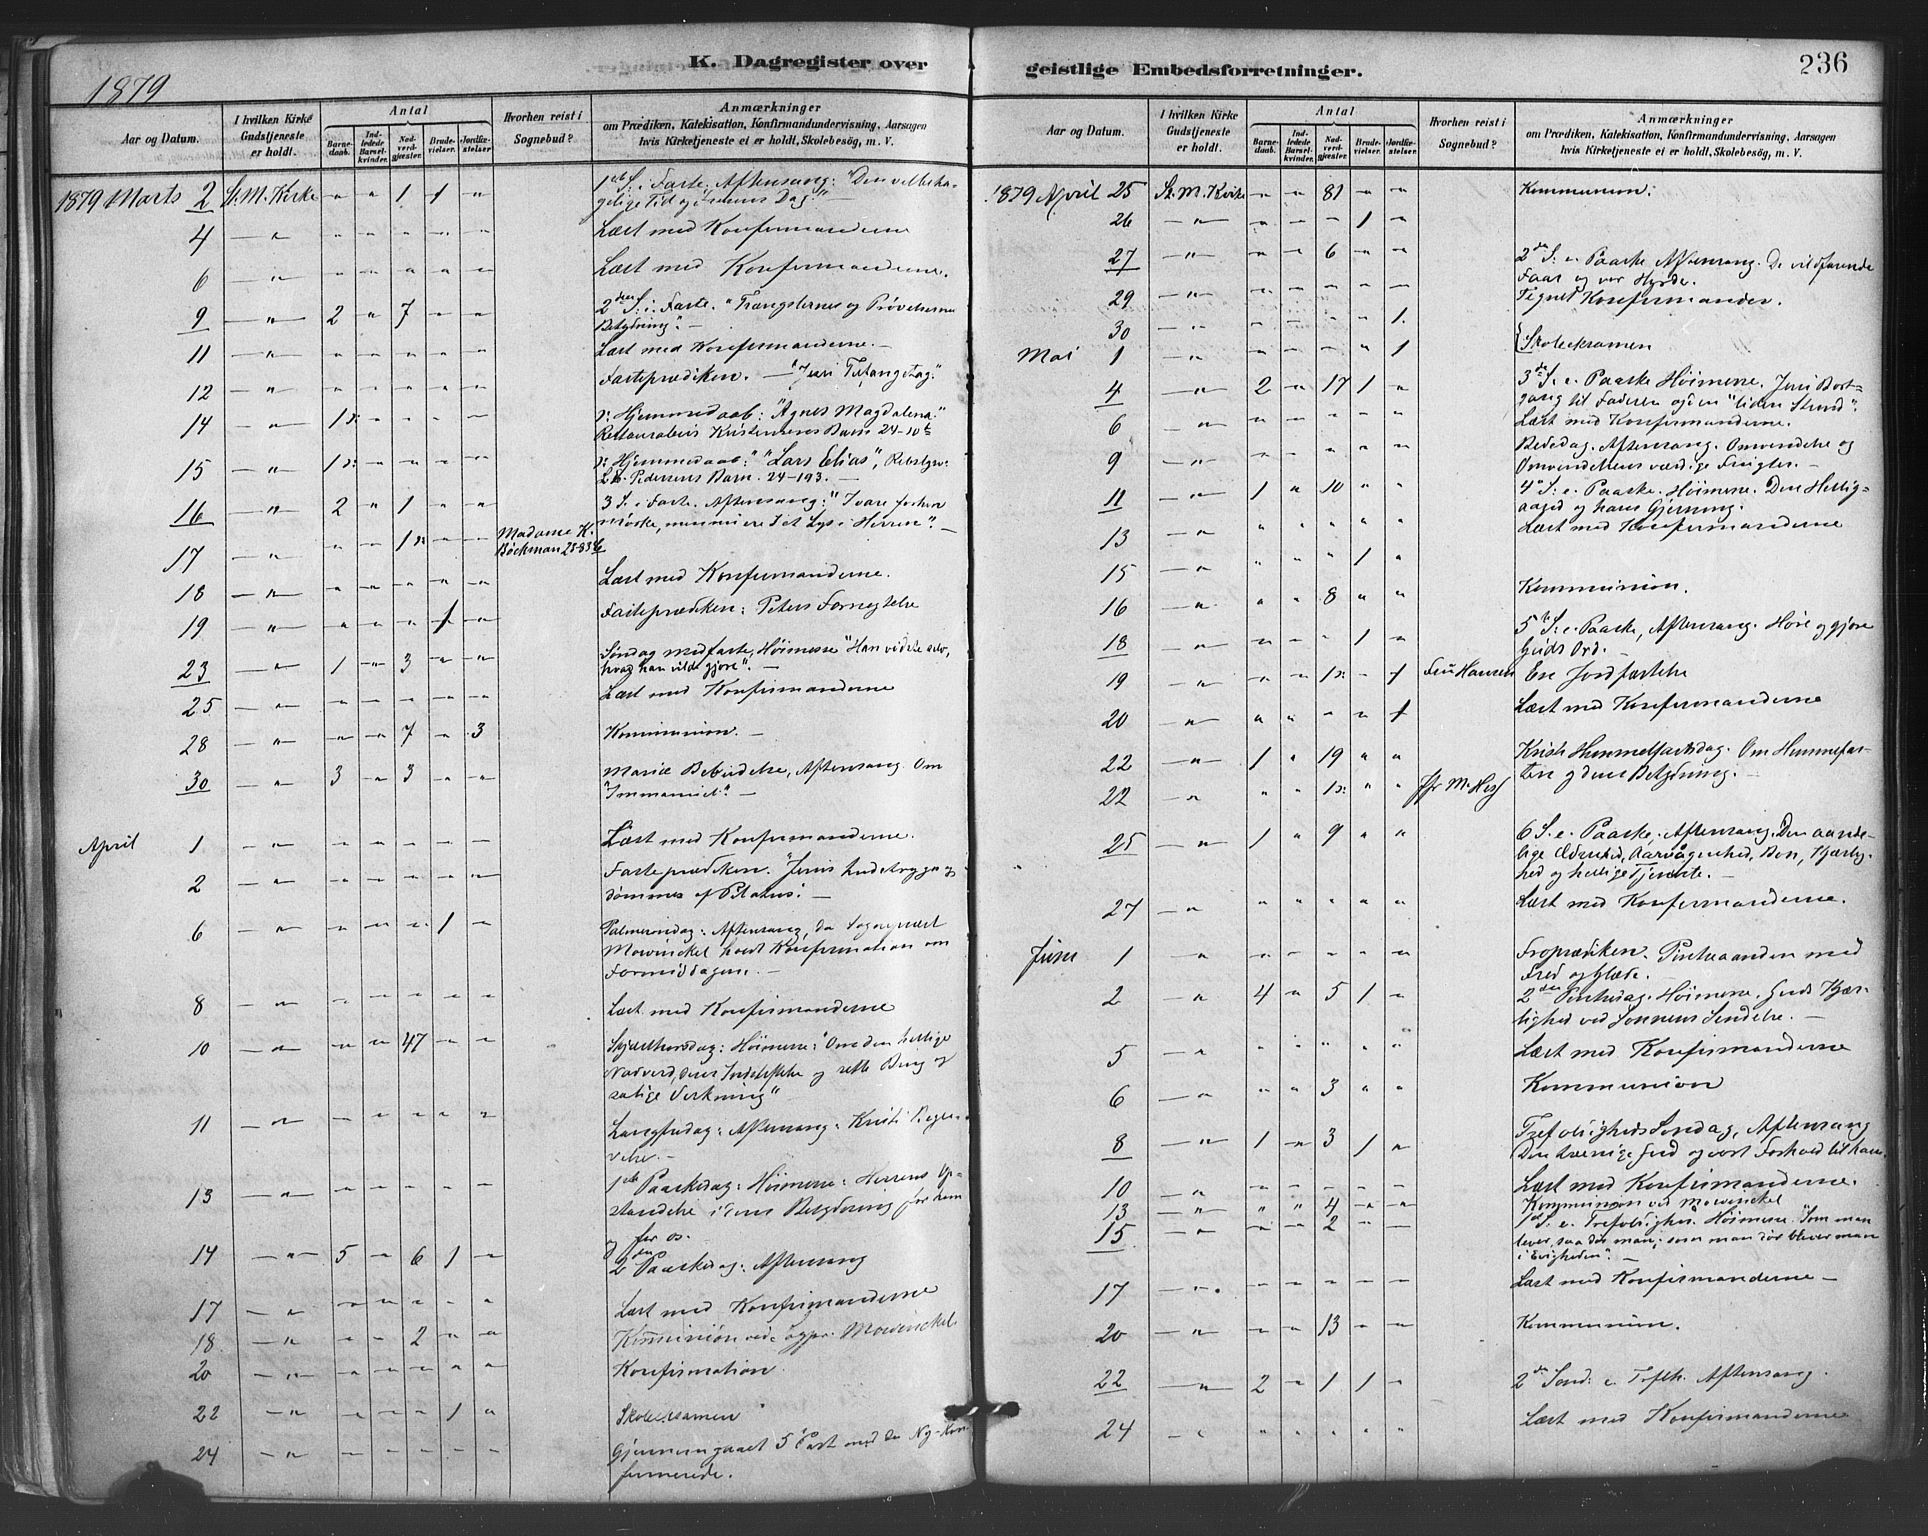 1879
K. Dagregister over
Aar og Datum.
I hvilken Kirke Gudstjeneste er holdt.
Antal
Barnedaab.
Indledede Barselkvinder.
Nadverdgjæster.
Brudevielser.
Jordfæstelser
Hvorhen reist i Sognebud?
Anmærkninger
om Prædiken, Katekisation, Konfirmandundervisning, Aarsagen
hvis Kirketjeneste ei er holdt, Skolebesøg, m. V.
1879 Marts 2 St. M. Kirke " " 1 1 " 1ste S. i Faste. Aftensang: "Den velbeha-
gelige Tid og Dag." —
4 — " — " " " " " Læst med Konfirmanderne
6 — " — " " " " " Læst med Konfirmanderne.
9 — " — 2 " 7 " " 2den S. i Faste. "Trængslernes og Prøvelsernes
Betydning". —
11 — " — " " " " " Læst med Konfirmanderne. —
12 — " — " " " " " Fasteprædiken. — "Jesu Tilfangetag."
14 — " — 1 " " " " Hjemmedaab: "Agnes Magdalena."
Kristensens Barn 24-10
15 — " — 1 " " " " Hjemmedaab: "Lars Elias",
Pedersens Barn. 24-193. —
16 — " — 2 " 1 " " 3 S. i Faste. Aftensang: "I vare fordum
Mørke, men nu ere I et Lys i Herren". —
17 — " — " " 1 " " Madame K.
Bøckman
18 — " — " " " " " Læst med Konfirmanderne.
19 — " — " " " 1 " Fasteprædiken: Peters Fornegtelse
23 — " — 1 " 3 " " Søndag Midfaste, Høimesse "Han vidste selv,
hvad han vilde gjøre". —
25 — " — " " " " " Læst med Konfirmanderne
28 — " — " " 7 " 3 Kommunion. —
30 — " — 3 " 3 " " Mariæ Bebudelse, Aftensang. Om
"Immanuel". —
April 1 — " — " " " " " Læst med Konfirmanderne.
2 — " — " " " " " Fasteprædiken. "Jesus
dømmes af Pilatus. —
6 — " — " " " 1 " Palmesøndag: Aftensang, da Sognepræst
Mowinckel holdt Konfirmation om
Formiddagen. —
8 — " — " " " " " Læst med Konfirmanderne
10 — " — " " 47 " " Skjærthorsdag: Høimesse: "Om den hellige
Nadverd, dens Indstiftelse og rette Brug og
salige Virkning"
11 — " — " " " " " Langfredag: Aftensang: Kristi Begra-
velse. —
13 — " — " " " " " 1ste Paaskedag: Høimesse: Herrens Op-
standelse i dens Betydning for ham
og for os.
14 — " — 5 " 6 1 " 2den Paaskedag: Aftensang
17 — " — " " " " " Læst med Konfirmanderne
18 — " — " " 2 " " Kommunion ved Sognepr. Mowinckel.
20 — " — " " " " " Konfirmation.
22 — " — " " " 1 " Skoleexamen
24 — " — " " " " " Gjennemgaaet 5 Part med de Ny-Kon-
firmerede.
geistlige Embedsforretninger.
236
Aar og Datum.
I hvilken Kirke Gudstjeneste er holdt.
Antal
Barnedaab.
Indledede Barselkvinder.
Nadverdgjæster.
Brudevielser.
Jordfæstelser.
Hvorhen reist i Sognebud?
Anmærkninger
om Prædiken, Katekisation, Konfirmandundervisning, Aarsagen
hvis Kirketjeneste ei er holdt, Skolebesøg, m. V.
1879 April 25 St. M. Kirke " " 81 " " Kommunion.
26 — " — " " " 1 "
27 — " — " " 6 " " 2den S. e. Paaske Aftensang. De vildfarende
Faar og vor Hyrde.
29 — " — " " " " " Tegnet Konfirmander.
30 — " — " " " " 1.
Mai 1 — " — " " " " 1 Skoleexamen
4 — " — 2 " 17 1 " 3de S. e. Paaske Høimesse. Jesu Bort-
gang til Faderen og den "liden Stund".
6 — " — " " " " " Læst med Konfirmanderne.
9 — " — " " " " " Bededag. Aftensang. Omvendelse og
Omvendelsens værdige Frugter. —
11 — " — 1 " 10 " " 4de S. e. Paaske. Høimesse. Den Hellig-
aand og hans Gjerning.
13 — " — " " " " " Læst med Konfirmanderne
15 " " " 1 "
16 — " — " " 8 " " Kommunion.
18 — " — " " " 1 " 5te S. e. Paaske, Aftensang. Høre og gjøre
Guds Ord. —
19 — " — " " 1 " 1 Fru Hansen En Jordfæstelse
20 — " — " " " " 1 Læst med Konfirmanderne
22 — " — 1 " 19 " " Kristi Himmelfartsdag. Om Himmelfar-
ten og dens Betydning. —
22 — " " " 1 " " M. Hess
25 — " — 1 " 9 " " 6 S. e. Paaske. Aftensang. Den aande-
lige Ædruelighed, Aarvaagenhed, Bøn, Kjærlig-
hed og hellige Tjeneste. —
27 — " " " " " " Læst med Konfirmanderne.
Juni 1 — " " " " " " Froprædiken. Pintseaanden med
Fred og Glæde. —
2 — " 4 " 5 1 " 2den Pintsedag. Høimesse. Guds Kjær-
lighed ved Sønnens Sendelse. —
5 — " " " " " " Læst med Konfirmanderne
6 — " " " 3 " " Kommunion
8 — " — 1 " 3 1 " Trefoldigheds Søndag, Aftensang
Den treenige Gud og vort Forhold til ham.
10 — " — " " " " " Læst med Konfirmanderne.
13 — " — " " 4 " " Kommunion ved Mowinckel
15 — " — " " 2 " " 1ste S. e. Trefoldighed. Høimesse. "Som man
lever, saa dør man; som man dør bliver man
i Evigheden". —
17 — " " " " " " Læst med Konfirmanderne —
20 — " — " " 13 " " Kommunion.
22 — " — 2 " 1 1 " 2den Sønd. e. Trefh. Aftensang.
24 — " " " " " " Læst med Konfirmanderne